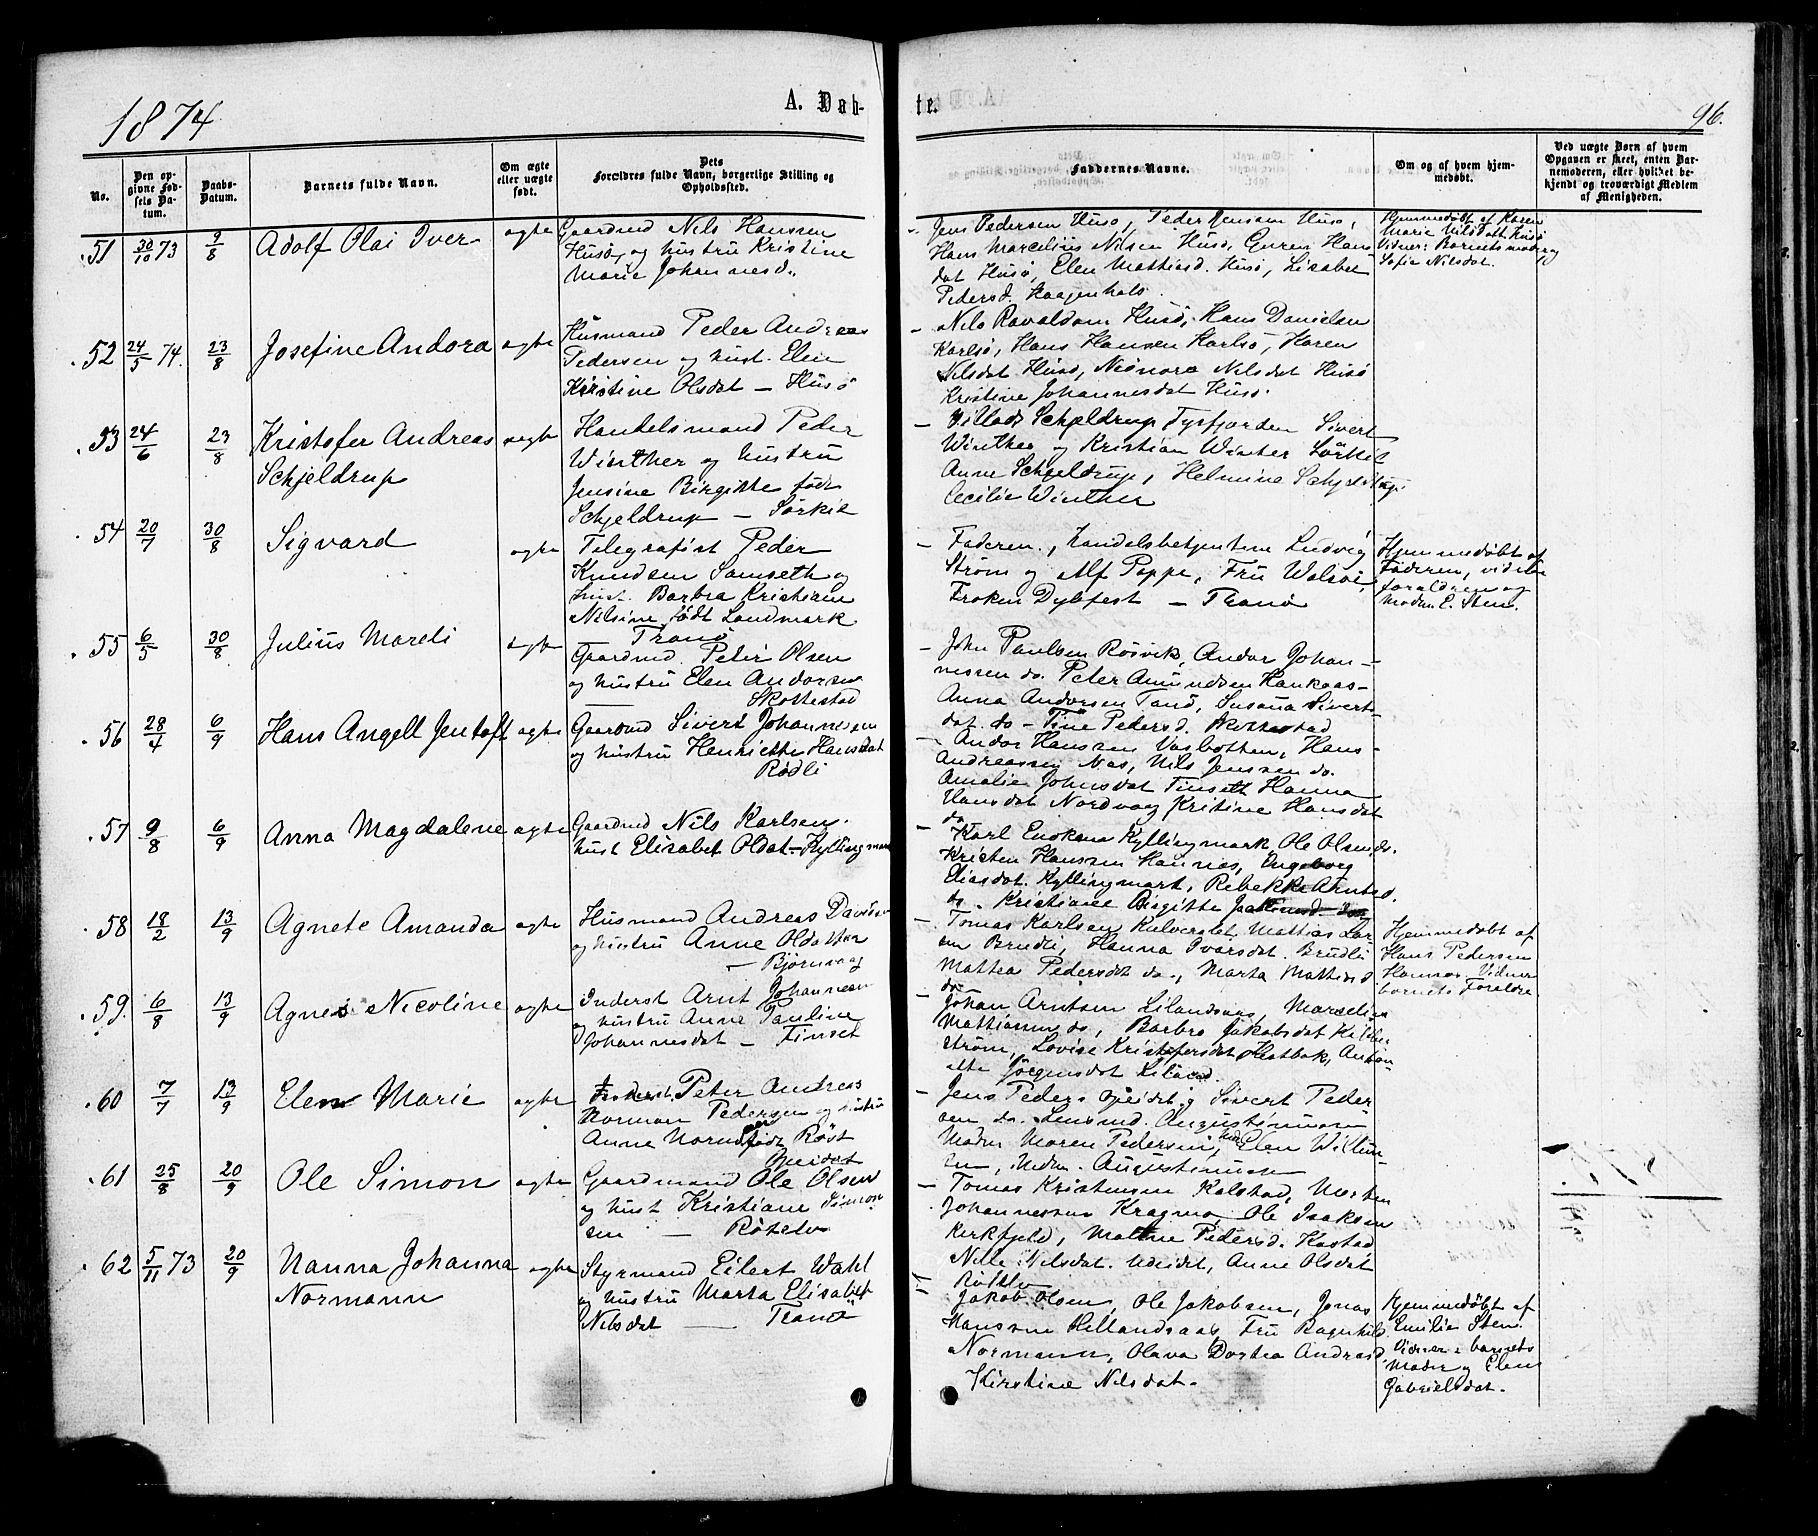 1874
A. Døb-
te.
96.
No.
Den opgivne Fødsels Datum.
Daabs-Datum.
Barnets fulde Navn.
Om ægte eller uægte født.
Dets Forældres fulde Navn, borgerlige Stilling og Opholdssted.
Faddernes Navne.
Om og af hvem hjemmedøbt.
Ved uægte Børn af hvem Opgaven er skeet, enten Barnemoderen, eller hvilket bekjendt og troværdigt Medlem af Menigheden.
51 30/10 73 9/8 Adolf Olai Iver ægte
Gaardmd Nils Hansen
Husø og hustru Kristine
Marie Johannesd.
Jens Pedersen Husø, Peder Jensen Husø,
Hans Marcelius Nilsen Husø, Guren Hans
dat Husø, Elen Mattiasd. Husø, Lisabet
Pedersd. Kaagenhals.
Hjemmedøbt af Karen
Marie Nilsdatt Husø
Vidner: Barnets moder og
Sofie Nilsdat.
52 24/5 74. 23/8 Josefine Andora ægte
Husmand Peder Andreas
Pedersen og hust. Elen
Kristine Olsdat - Husø
Nils Ravaldsen Husø, Hans Danielsen
Karlsø, Hans Hansen Karlsø, Karen
Nilsdat Husø, Nionora Nilsdat Husø
Kristine Johannesdat Husø.
53 24/6 23/8 Kristofer Andreas ægte
Schjeldrup
Handelsmand Peder
Winther og hustru
Jensine Birgitte født
Schjeldrup - Sørkil
Villads Schjeldrup Tysfjorden Sivert
Winther og Kristian Winter Sørkil
Anne Schjeldrup, Helmine Schjeldrup,
Cecilie Winther
54 20/7 30/8 Sigvard ægte
Telegrafist Peder
Knudsen Samseth og
hust. Barbra Kristiane
Nilsine født Landmark
Tranø
Faderen, Handelsbetjentene Ludvig
Strøm og Alf Poppe, Fru Walsøe,
Frøken Dybfest - Tranø
Hjemmedøbt af
Faderen, vidner
forældrene og
Madm E. Sten.
55 6/5 30/8 Julius Mareli ægte
Gaardmd. Peter Olsen
og hustru Elen Andorsen
Skottestad
John Paulsen Røsvik, Andor Johan-
nessen do. Peter Amundsen Haukaas-
Anna Andorsen Tanø, Susana Siverts
dat. do - Tine Pedersd. Skottestad
56 28/4 6/9 Hans Angell Jentoft ægte
Gaardmd Sivert Johannesen
og hustru Henriette Hansdat
Rødli
Andor Hanssen Vasbotten, Hans
Andreassen Næs, Nils Jenssen do.
Amalie Johnsdat Finseth Hanna
Hansdat Nordvaag Kristine Hansdat
do
57 9/8 6/9 Anna Magdalene ægte
Gaardmd Nils Karlsen.
hust Elisabet Oldat - Kyllingmark
Karl Enoksen Kyllingmark, Ole Olsen do.
Kristen Hanssen Haunes, Engeborg
Eliasdat. Kyllingmark, Rebekke Arntsd.
do. Kristiane Birgitte
58 18/2 13/9 Agnete Amanda ægte
Husmand Andreas Davidsen
og hustru Anne Oldatter
- Bjørnvaag
Tomas Karlsen Kulverelet Mattias Lar-
sen Brudli, Hanna Ivarsdat. Brudli
Mattea Pedersdat do., Marta Mattiasd
do
Hjemmedøbt af
Hans Pedersen
Hamnes. Vidner
barnets Forældre
59. 6/8 13/9 Agnes Nicoline ægte
Inderst Arnt Johannesen
og hustru Anne Pauline
Johannesdat - Finset
Johan Arntsen Lilandsaas, Marselius
Mattiassen do, Barbro Jakobsdat Kilde-
strøm, Lovise Kristofersdat Hatbak, Anton-
ette Jørgensdat
60 7/7 13/9 Elen Marie ægte
Inderst. Peter Andreas
Norman Pedersen og hustru
Anne Norum født Røst
Opeidet
Jens Peders Opeidet, Sivert Peder
sen do. Lensmd. Augustinusen
Madm Maren Pedersen, Elen Willum-
sen, Mdm. Augustinusen
61 25/8 20/9 Ole Simon ægte
Gaardmand Ole Olsen
og hust Kristiane Simon
sen - Røtelv
Tomas Kristensen Kalstad, Morten
Johannessen Kragmo, Ole Isaksen
Kirkfjeld, Mattine Pedersd. Kastad
Nille Nilsdat. Udeidet, Anne Olsdat
Røtelv
62 5/11 73 20/9 Nanna Johanna ægte
Normann
Styrmand Eilert Wahl
og hustru Marta Elisabet
Nilsdat - Tranø
Jakob Olsen, Ole Jakobsen, Jonas
Hanssen Hellandsaas, Fru Ragnhild
Normann, Olava Dortea Andreasd
Kirstine Nilsdat.
Hjemmedøbt af
Emilie Sten.
Vidner: barnets
Moder og Elen
Gabrielsdat.